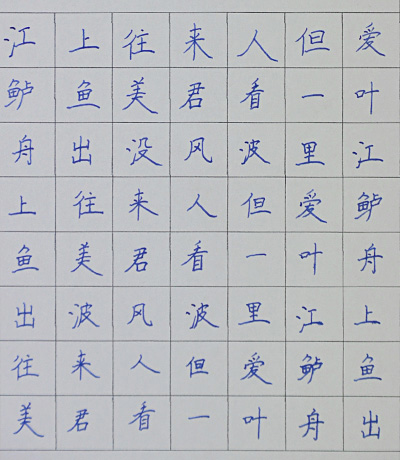 江上往来人但爱
鲈鱼美君看一叶
舟出没风波里江
上往来人但爱鲈
鱼美君看一叶舟
出波风波里江上
往来人但爱鲈鱼
美君看一叶舟出